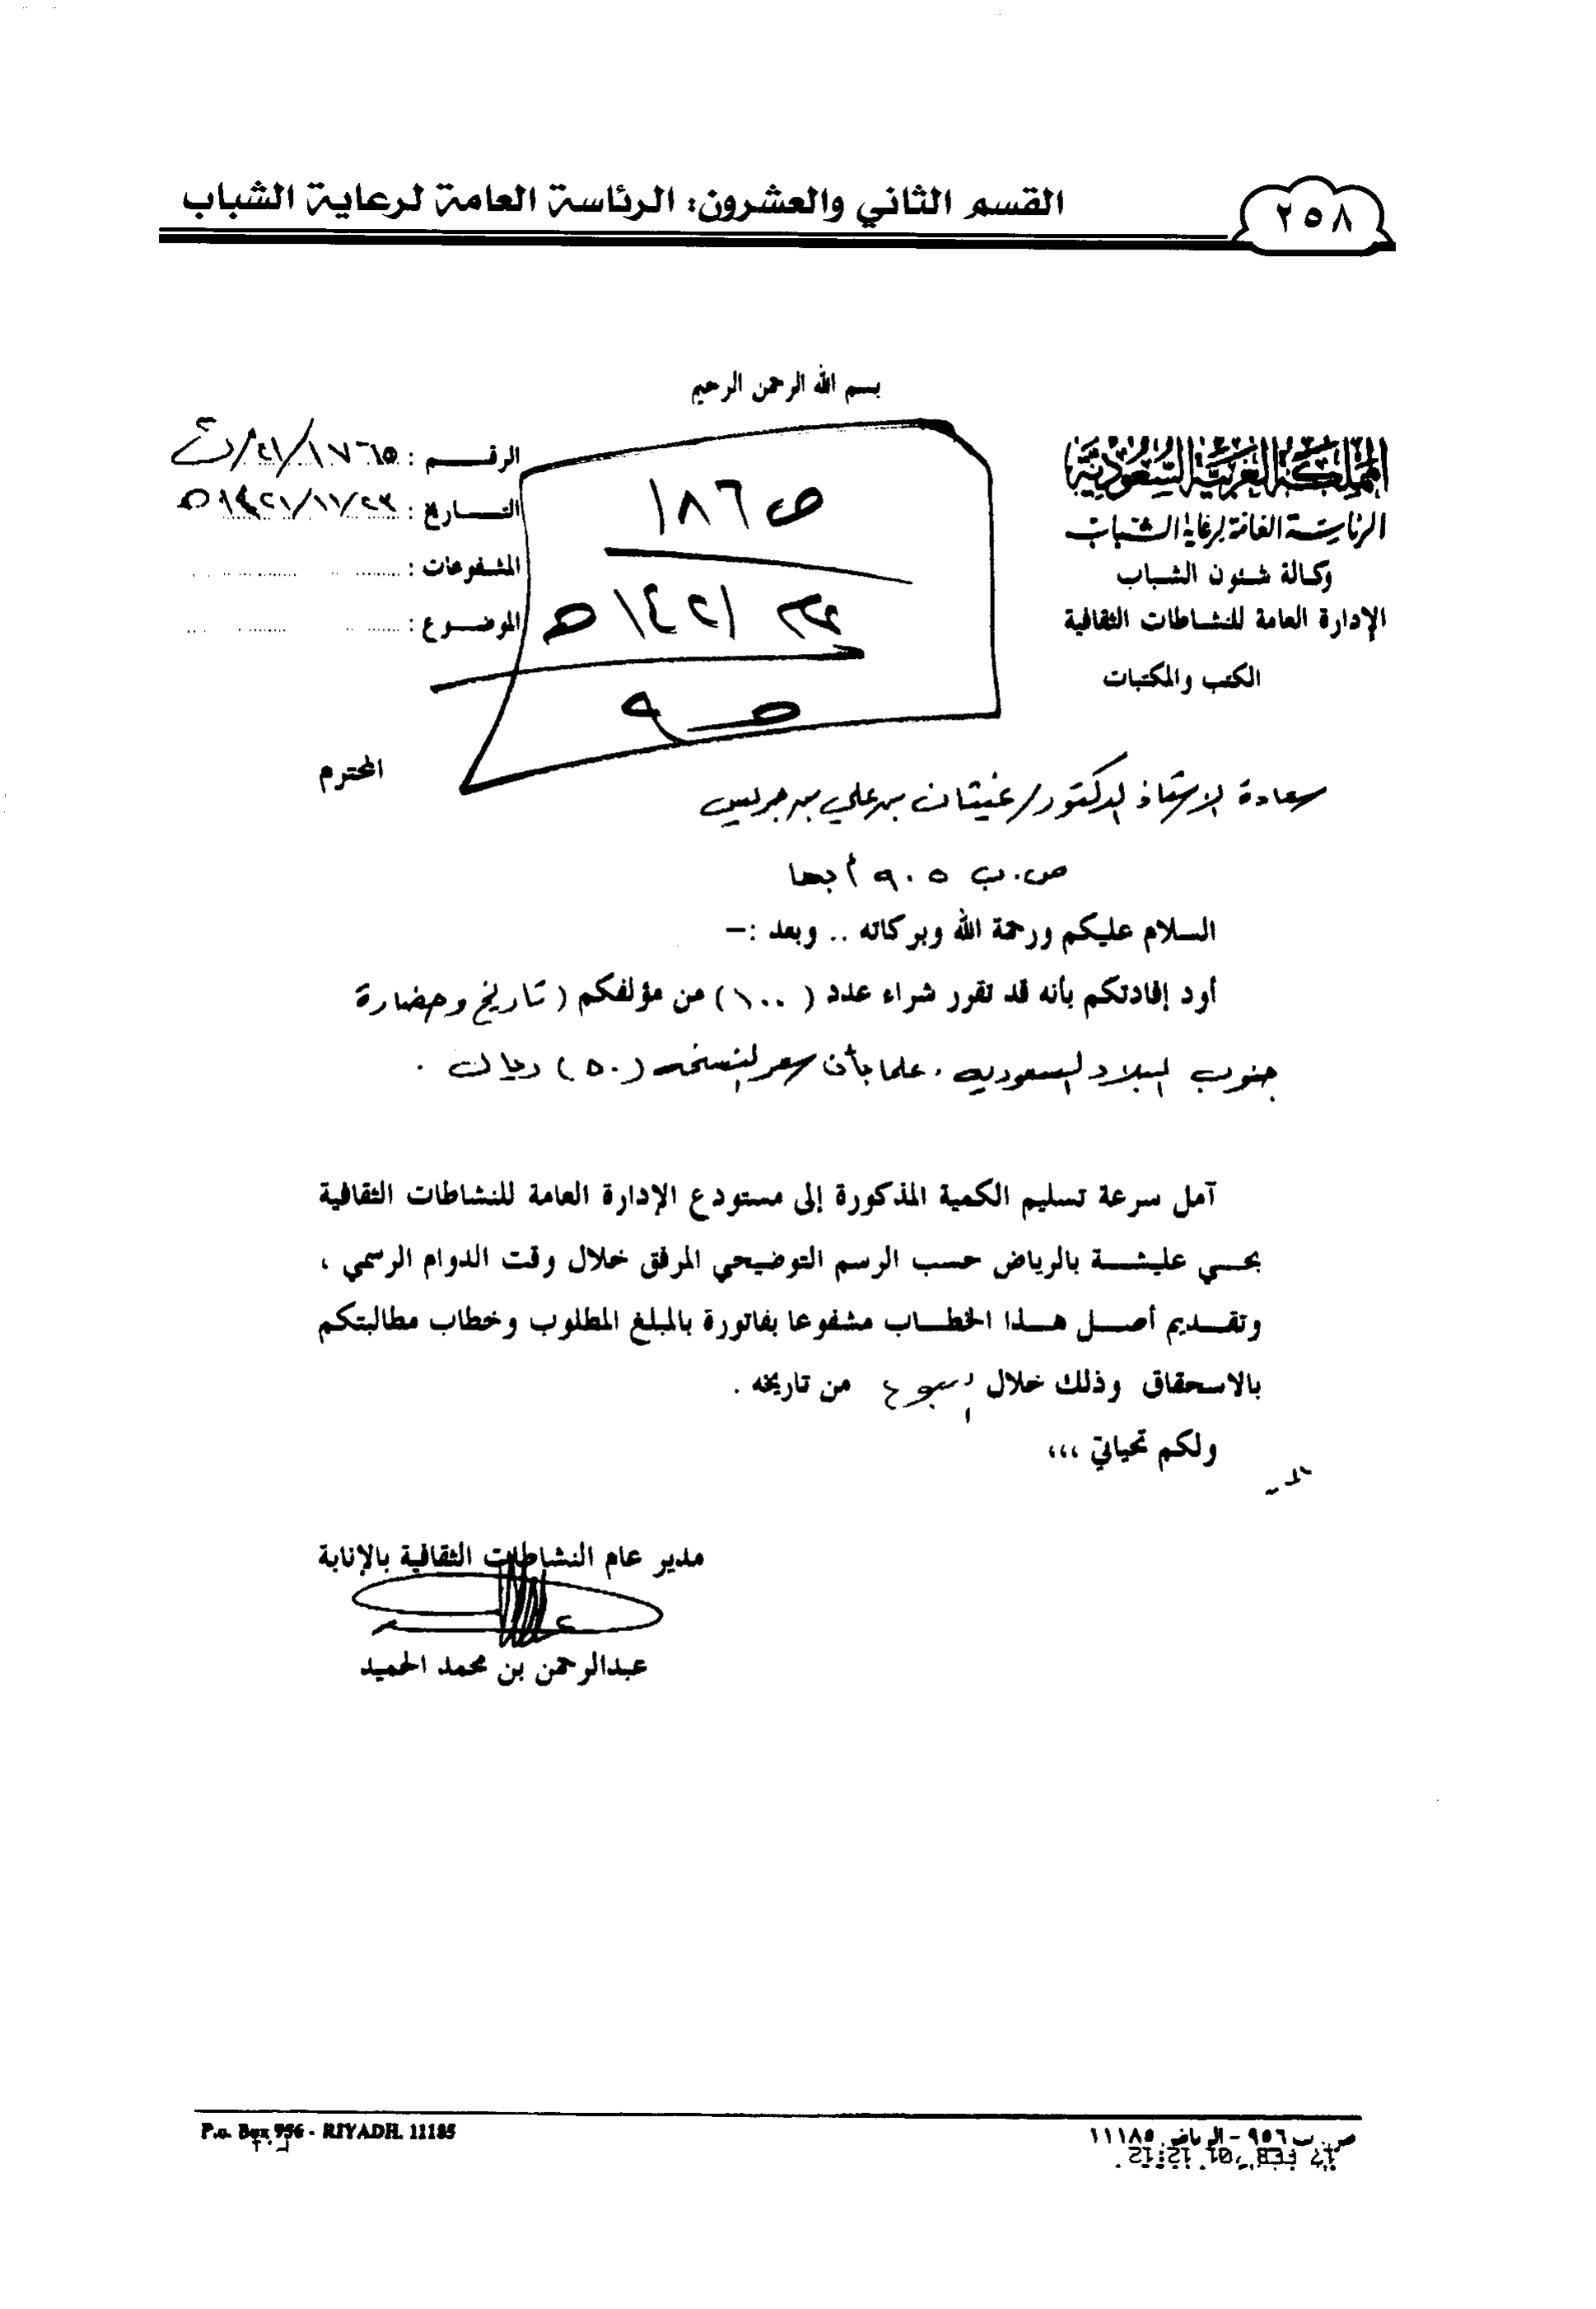 ٢٥٨
القسم الثاني والعشرون: الرئاسة العامة لرعاية الشباب
بسم الله الرحمن الرحيم
المملكة العربية السعودية
الرئاسة العامة لرعاية الشباب
وكالة شئون الشباب
الإدارة العامة للنشاطات الثقافية
الكتب والمكتبات
ص ١٨٦
١٤٢١ هـ
الرقـــم : ١٧٦٥/٢١/
التـــاريخ : ١٤٢١/١١/٢٣هـ
المشفوعات :
الموضـــوع :
سعادة الاستاذ الدكتور/ غيثان بن علي بن جريس
المحترم
ص.ب ٩٠٥ أبها
السلام عليكم ورحمة الله وبركاته .. وبعد :–
أود إفادتكم بأنه قد تقرر شراء عدد ( ١٠٠ ) من مؤلفكم ( تاريخ وحضارة
جنوب البلاد السعوديه ، علما بأن سعر النسخه ( ٥٠ ) ريال .
آمل سرعة تسليم الكمية المذكورة إلى مستودع الإدارة العامة للنشاطات الثقافية
بحـــي عليشـــة بالرياض حسب الرسم التوضيحي المرفق خلال وقت الدوام الرسمي ،
وتقـــديم أصـــل هـــذا الخطـــاب مشفوعا بفاتورة بالمبلغ المطلوب وخطاب مطالبتكم
بالاسحقاق وذلك خلال اسبوع من تاريخه .
ولكم تحياتي ،،،
مدير عام النشاطات الثقافية بالإنابة
عبدالرحمن بن محمد الحميد
P.o. Box 956 - RIYADH. 11185
ص . ب ٩٥٦ – الرياض ١١١٨٥